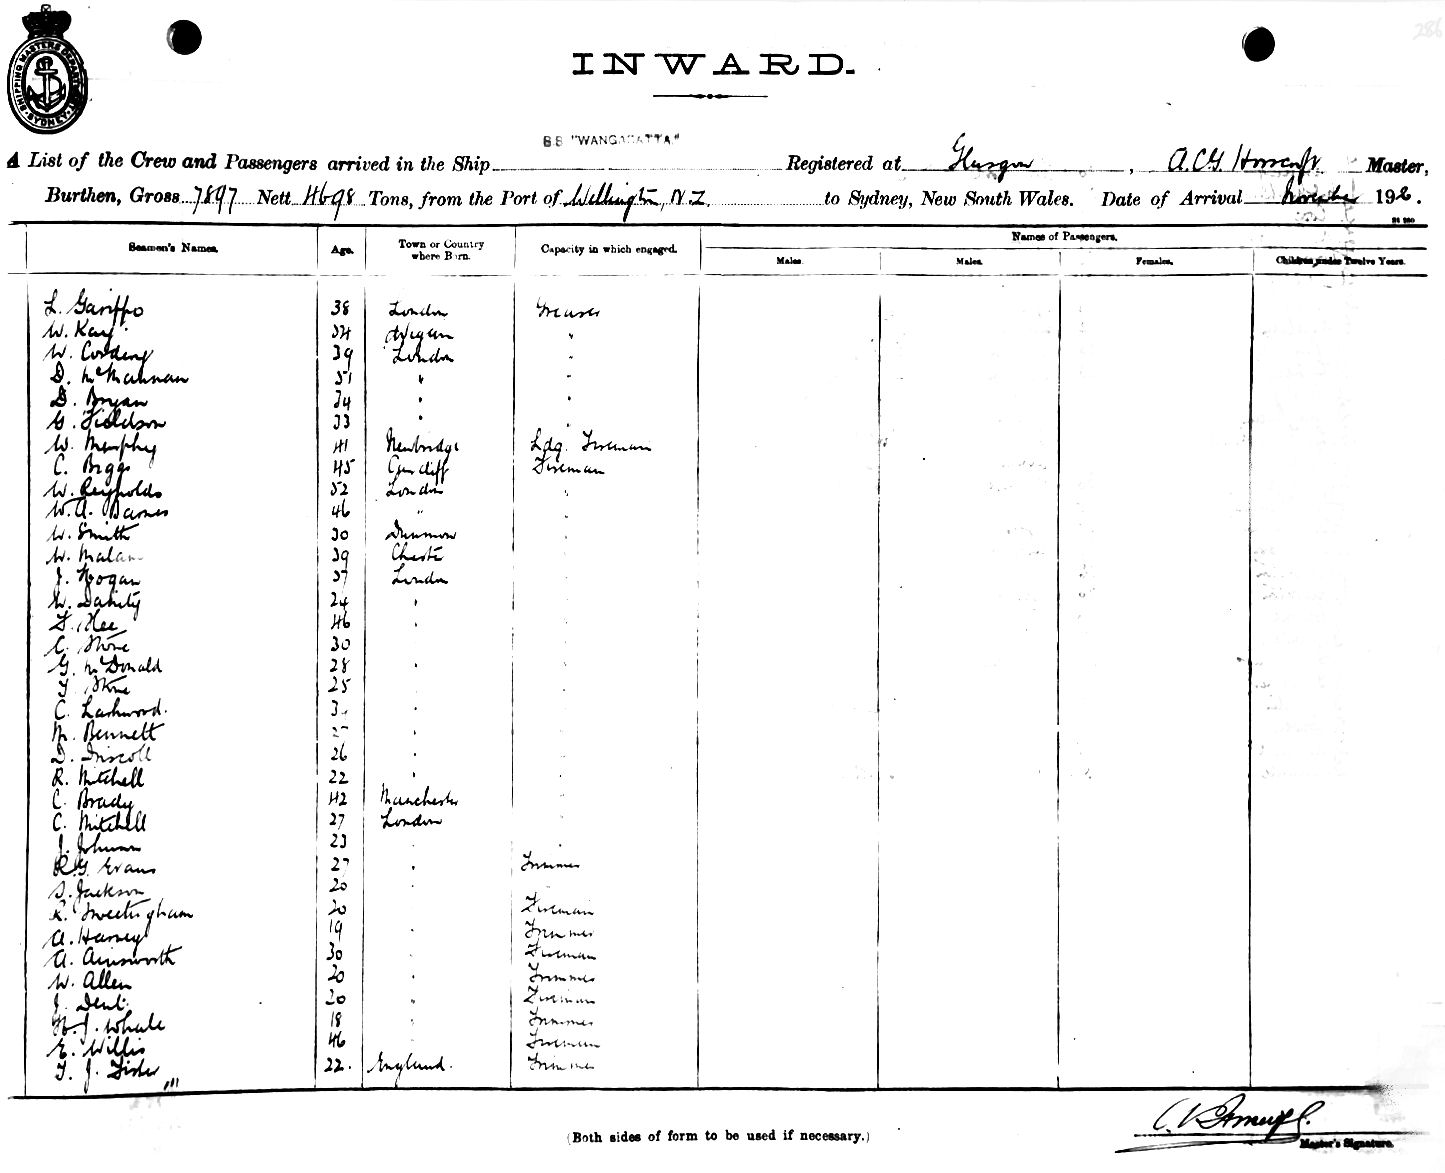 SHIPPING MASTERS DEPARTMENT SYDNEY
INWARD.
"WANGARATTA."
A List of the Crew and Passengers arrived in the Ship Registered at Glasgow, A.C.G. Master,
Burthen, Gross 7897 Nett 4698 Tons, from the Port of Wellington, N.Z. to Sydney, New South Wales. Date of Arrival November 192.
Seamen's Names. Age. Town or Country where Born. Capacity in which engaged. Names of Passengers.
Males. Males. Females. Children under Twelve Years.
L. Gariffo 38 London Greaser
W. Kay 34 Wigan "
W. Cording 39 London "
D. McMannan 51 " "
D. Bryan 34 " "
G. Fieldson 33 "
W. Memphy 41 Newbridge Ldg. Fireman
C. Biggs 45 Cardiff Fireman
W. Reynolds 52 London "
W.A. Barnes 46 " "
W. Smith 30 Dunmow "
W. Malam 39 Chester "
J. Hogan 37 London "
W. Dainty 24 " "
46 "
C. Stone 30 "
G. McDonald 28 " "
Stone 25 " "
C. Larkwood. "
M. Bennett "
D. Driscoll 26 " "
R. Mitchell 22 " "
C. Brady 42 Manchester "
C. Mitchell 27 London "
J. Johnson 23 " "
R.G. Evans 27 " Trimmer
S. Jackson 20 "
R. Sweetingham 20 " Fireman
A. Harvey 19 " Trimmer
A. Ainsworth 30 " Fireman
W. Allen 20 " Trimmer
J. Dent 20 " Fireman
H.J. Whale 18 " Trimmer
E. Willis 46 " Fireman
T. J. Fisher 22. England. Trimmer
Master's Signature.
(Both sides of form to be used if necessary.)